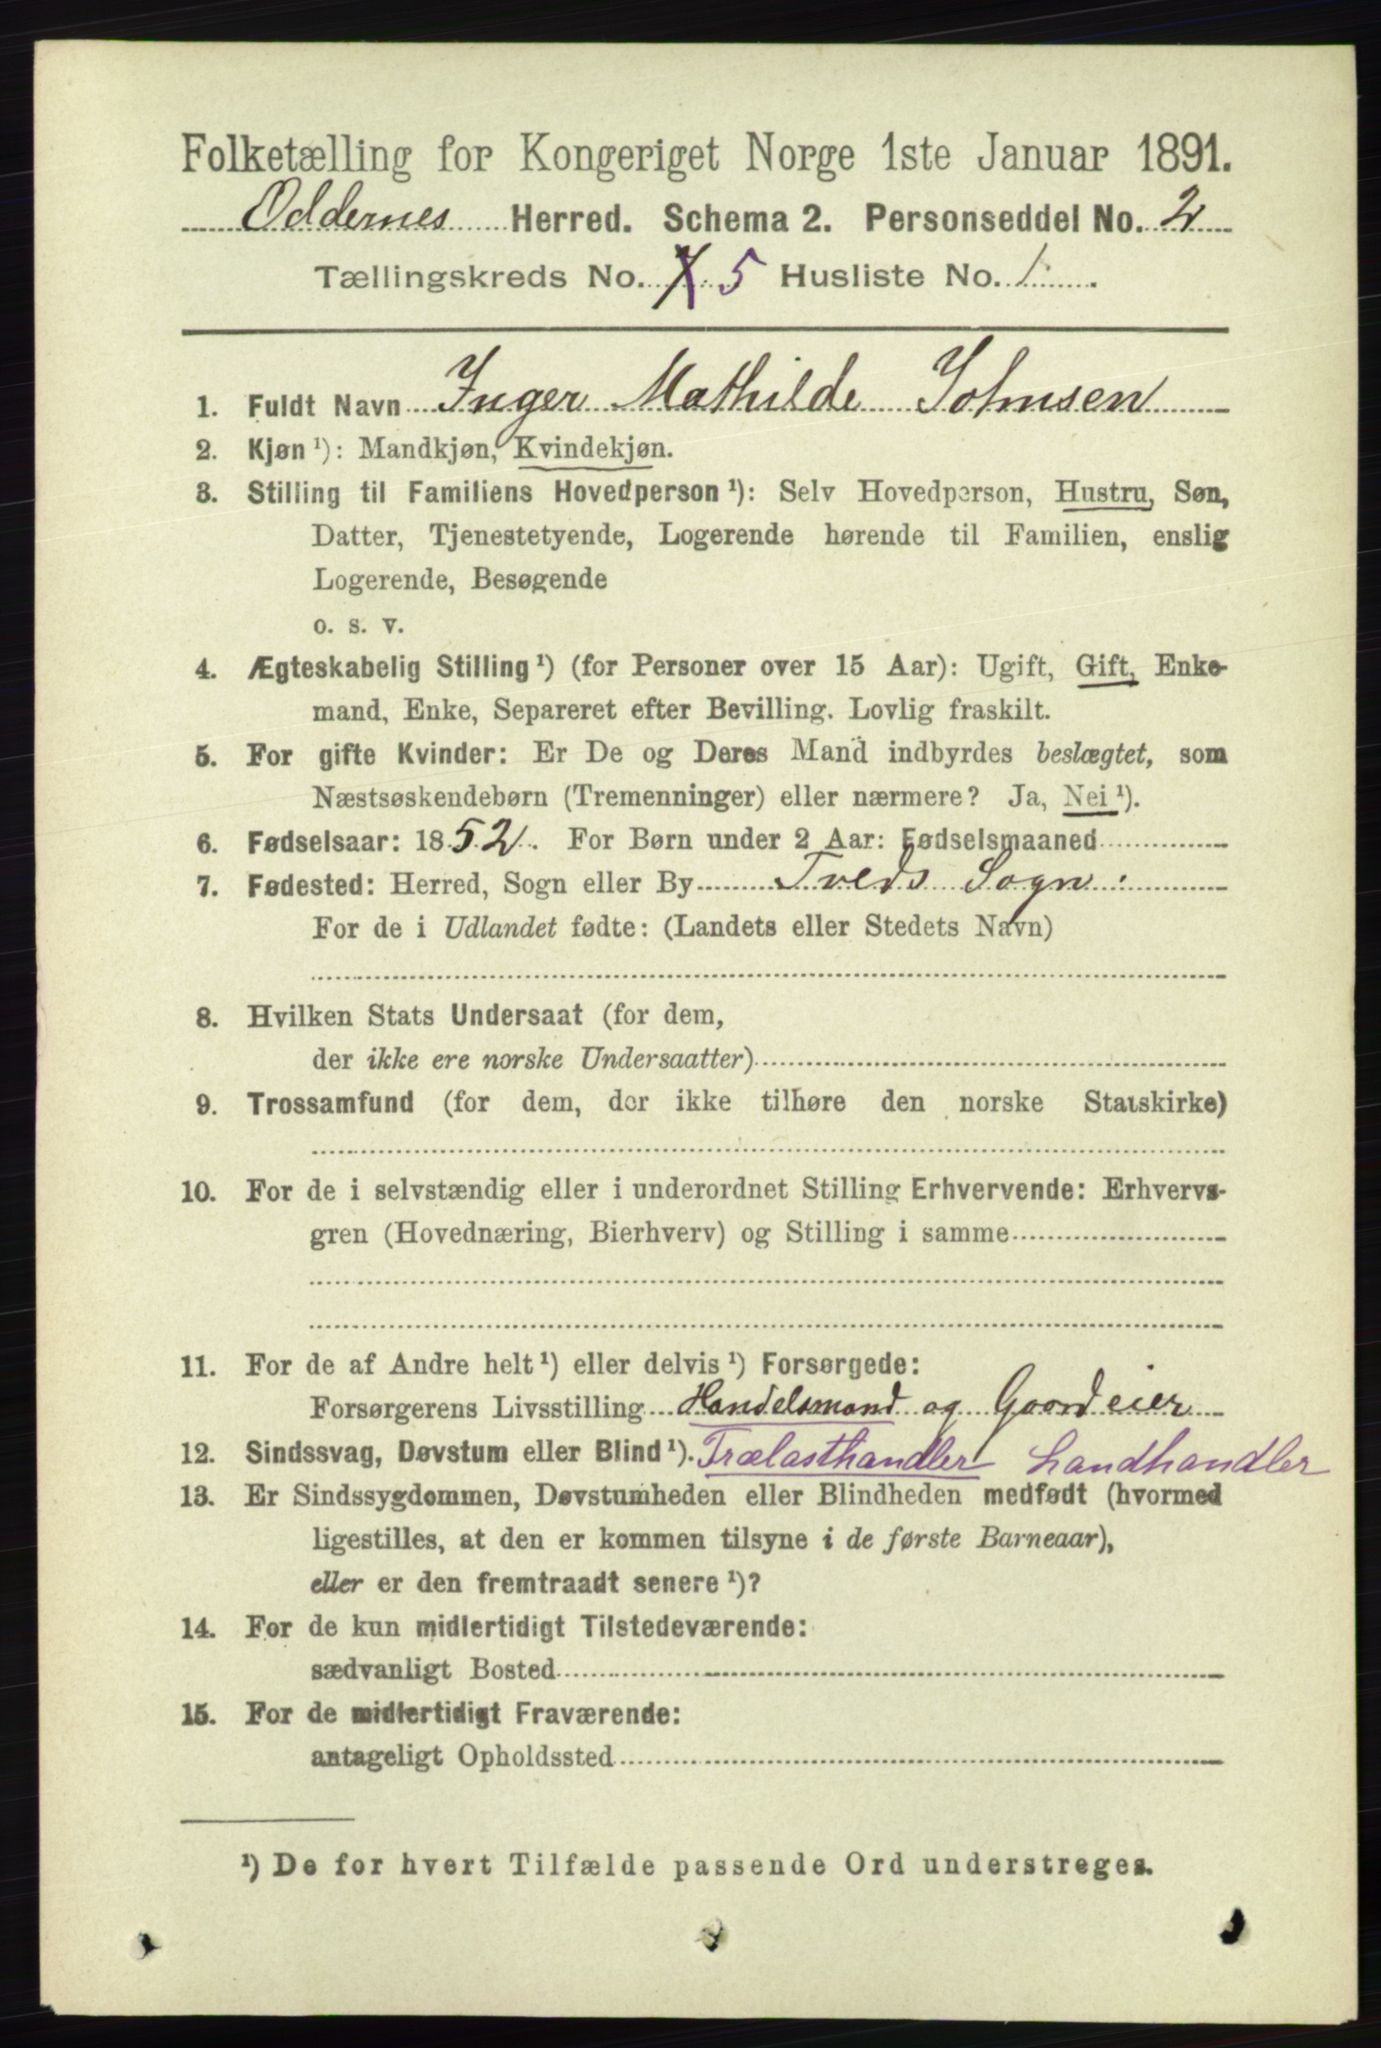 Folketælling for Kongeriget Norge 1ste Januar 1891.
Oddernes Herred. Schema 2. Personseddel No. 2
Tællingskreds No. 5 Husliste No. 1.
1. Fuldt Navn Inger Mathilde Johnsen
2. Kjøn ¹): Mandkjøn, Kvindekjøn.
3. Stilling til Familiens Hovedperson ¹): Selv Hovedperson, Hustru, Søn,
Datter, Tjenestetyende, Logerende hørende til Familien, enslig
Logerende, Besøgende
o. s. v.
4. Ægteskabelig Stilling ¹) (for Personer over 15 Aar): Ugift, Gift, Enke-
mand, Enke, Separeret efter Bevilling. Lovlig fraskilt.
5. For gifte Kvinder: Er De og Deres Mand indbyrdes beslægtet, som
Næstsøskendebørn (Tremenninger) eller nærmere? Ja, Nei ¹).
6. Fødselsaar: 1852. For Børn under 2 Aar: Fødselsmaaned
7. Fødested: Herred, Sogn eller By Tveds Sogn.
For de i Udlandet fødte: (Landets eller Stedets Navn)
8. Hvilken Stats Undersaat (for dem,
der ikke ere norske Undersaatter)
9. Trossamfund (for dem, der ikke tilhøre den norske Statskirke)
10. For de i selvstændig eller i underordnet Stilling Erhvervende: Erhvervs-
gren (Hovednæring, Bierhverv) og Stilling i samme
11. For de af Andre helt ¹) eller delvis ¹) Forsørgede:
Forsørgerens Livsstilling Handelsmand og Gaardeier
12. Sindssvag, Døvstum eller Blind ¹). Trælasthandler Landhandler
13. Er Sindssygdommen, Døvstumheden eller Blindheden medfødt (hvormed
ligestilles, at den er kommen tilsyne i de første Barneaar),
eller er den fremtraadt senere ¹)?
14. For de kun midlertidigt Tilstedeværende:
sædvanligt Bosted
15. For de midlertidigt Fraværende:
antageligt Opholdssted
¹) De for hvert Tilfælde passende Ord understreges.